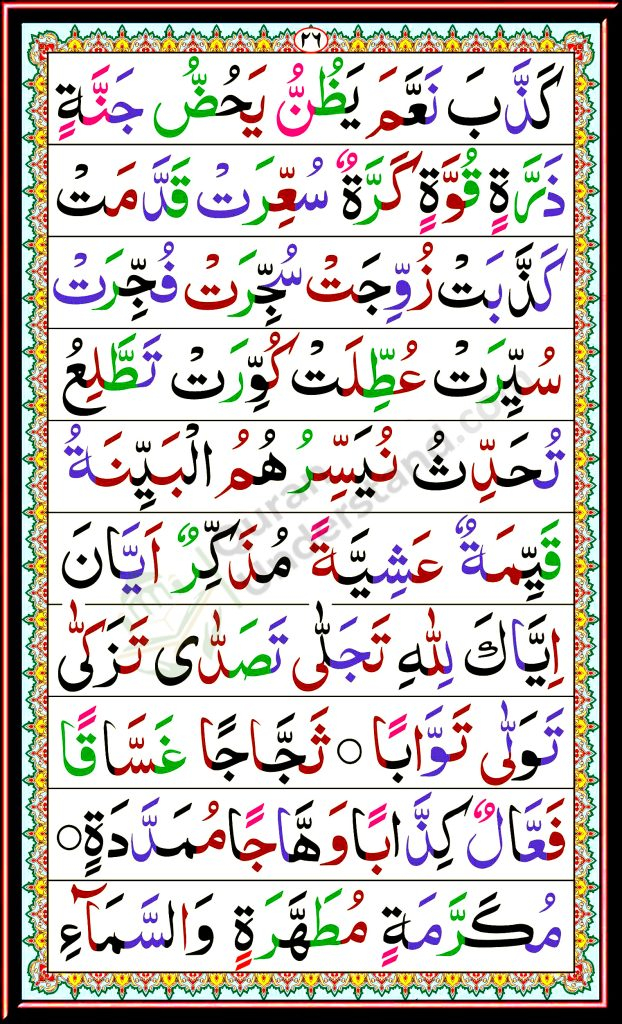 ٢٦
كَذَّبَ نَعَّمَ يَظُنُّ يَحُضُّ جَنَّةٍ
ذَرَّةٍ قُوَّةٍ كَرَّةٌ سُعِّرَتْ قَدَّمَتْ
كَذَّبَتْ زُوِّجَتْ سُجِّرَتْ فُجِّرَتْ
سُيِّرَتْ عُطِّلَتْ كُوِّرَتْ تَطَّلِعُ
تُحَدِّثُ نُيَسِّرُ هُمُ الْبَيِّنَةُ
قَيِّمَةٌ عَشِيَّةً مُذَكِّرٌ اَيَّانَ
اِيَّاكَ لِلّٰهِ تَجَلّٰى تَصَدّٰى تَزَكّٰى
تَوَلّٰى تَوَّابًا ○ ثَجَّاجًا غَسَّاقًا
فَعَّالٌ كِذَّابًا وَهَّاجًا مُمَدَّدَةٍ ○
مُكَرَّمَةٍ مُطَهَّرَةٍ وَالسَّمَآءِ
Quran Understand.com